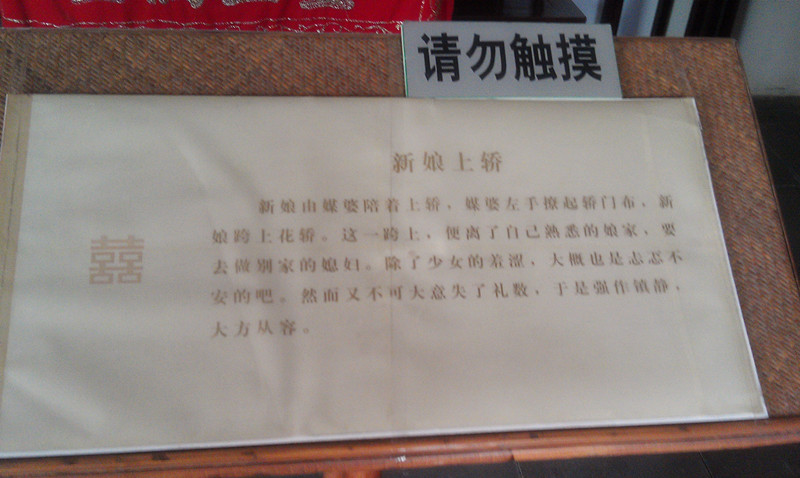 请勿触摸
新娘上轿
新娘由媒婆陪着上轿，媒婆左手撩起轿门布，新
娘跨上花轿。这一跨上，便离了自己熟悉的娘家，要
去做别家的媳妇。除了少女的羞涩，大概也是忐忑不
安的吧。然而又不可大意失了礼数，于是强作镇静，
大方从容。
囍